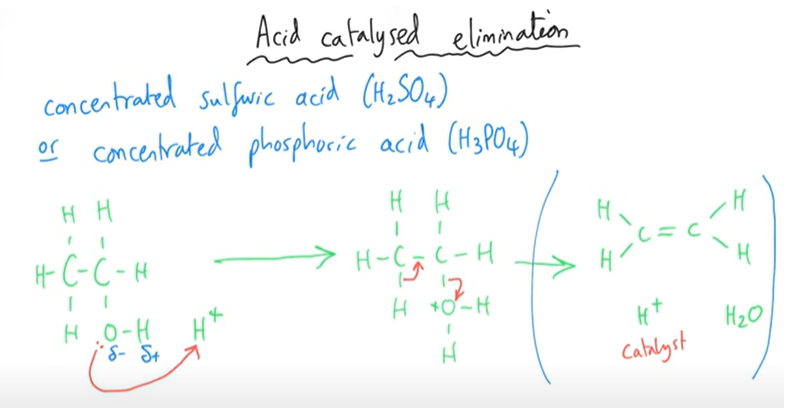 Acid catalysed elimination
concentrated sulfuric acid (H₂SO₄)
or concentrated phosphoric acid (H₃PO₄)
H H
H-C-C-H
H O-H H⁺
δ- δ+
H H
H-C-C-H
H +O-H
H
H H
C=C
H H
H⁺ H₂O
Catalyst